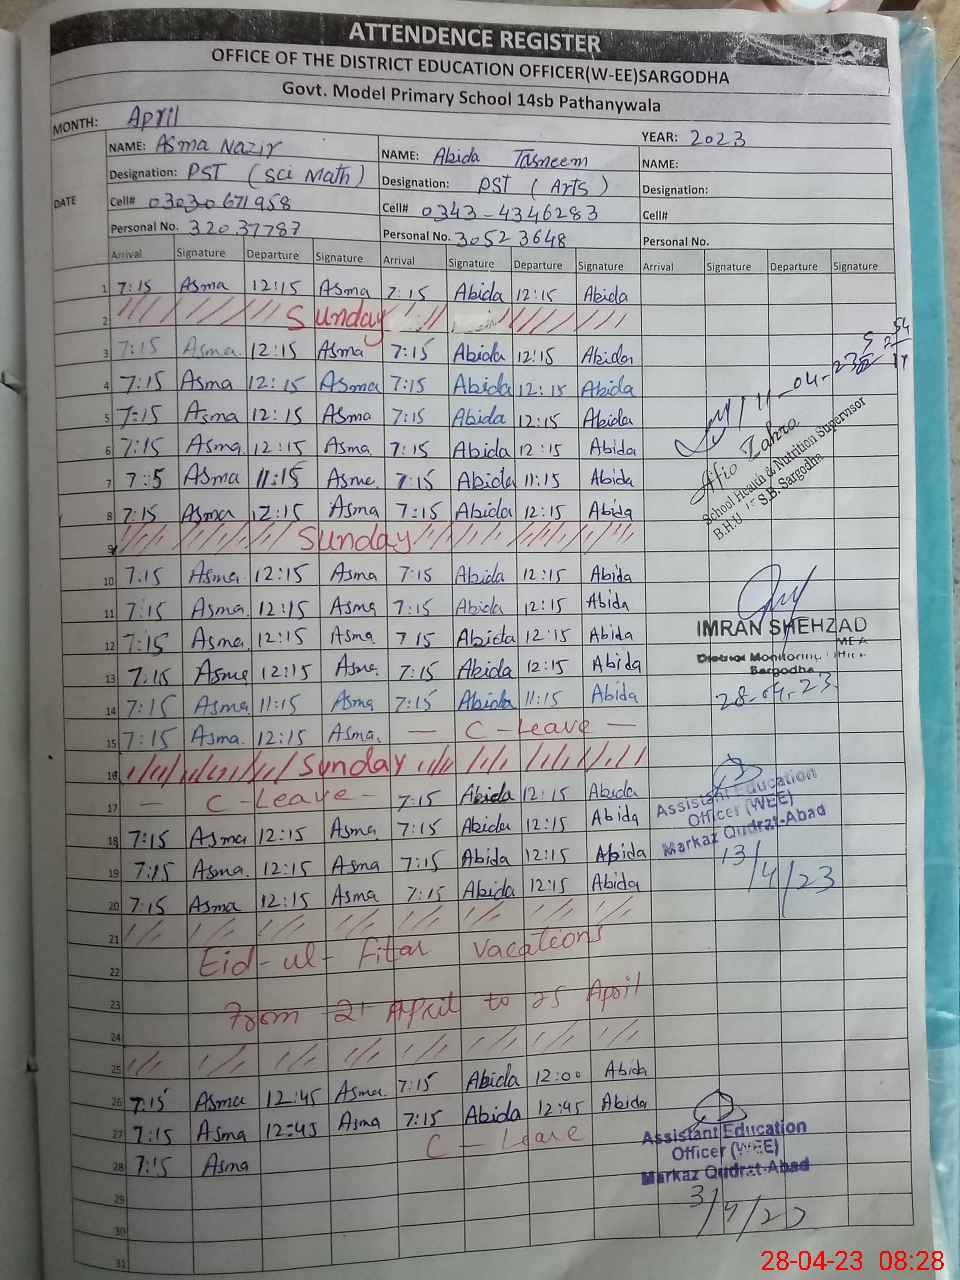 ATTENDENCE REGISTER
OFFICE OF THE DISTRICT EDUCATION OFFICER(W-EE)SARGODHA
Govt. Model Primary School 14sb Pathanywala
MONTH: April YEAR: 2023
NAME: Asma Nazir NAME: Abida Tasneem NAME:
Designation: PST (Sci Math) Designation: PST (Arts) Designation:
DATE Cell# 03030671958 Cell# 0343-4346283 Cell#
Personal No. 32037787 Personal No. 30523648 Personal No.
Arrival Signature Departure Signature Arrival Signature Departure Signature Arrival Signature Departure Signature
1 7:15 Asma 12:15 Asma 7:15 Abida 12:15 Abida
2 Sunday
3 7:15 Asma 12:15 Asma 7:15 Abida 12:15 Abida
4 7:15 Asma 12:15 Asma 7:15 Abida 12:15 Abida
5 7:15 Asma 12:15 Asma 7:15 Abida 12:15 Abida
6 7:15 Asma 12:15 Asma 7:15 Abida 12:15 Abida
7 7:5 Asma 11:15 Asma 7:15 Abida 11:15 Abida
8 7:15 Asma 12:15 Asma 7:15 Abida 12:15 Abida
9 Sunday
10 7:15 Asma 12:15 Asma 7:15 Abida 12:15 Abida
11 7:15 Asma 12:15 Asma 7:15 Abida 12:15 Abida
12 7:15 Asma 12:15 Asma 7 15 Abida 12:15 Abida
13 7:15 Asma 12:15 Asma 7:15 Abida 12:15 Abida
14 7:15 Asma 11:15 Asma 7:15 Abida 11:15 Abida
15 7:15 Asma 12:15 Asma — C-Leave —
16 Sunday
17 — C-Leave 7:15 Abida 12:15 Abida
18 7:15 Asma 12:15 Asma 7:15 Abida 12:15 Abida
19 7:15 Asma 12:15 Asma 7:15 Abida 12:15 Abida
20 7:15 Asma 12:15 Asma 7:15 Abida 12:15 Abida
21
22 Eid-ul-Fitar vacations
23 From 21 April to 25 April
24
25
26 7:15 Asma 12:45 Asma 7:15 Abida 12:00 Abida
27 7:15 Asma 12:45 Asma 7:15 Abida 12:45 Abida
28 7:15 Asma C-Leave
29
30
31
11-04-23
Zahra
School Health & Nutrition Supervisor
B.H.U S.B. Sargodha
IMRAN SHEHZAD
MEA
District Monitoring Officer
Sargodha
28-04-23
Assistant Education
Officer (WEE)
Markaz Qudrat-Abad
13/4/23
Assistant Education
Officer (WEE)
Markaz Qudrat-Abad
28-04-23 08:28